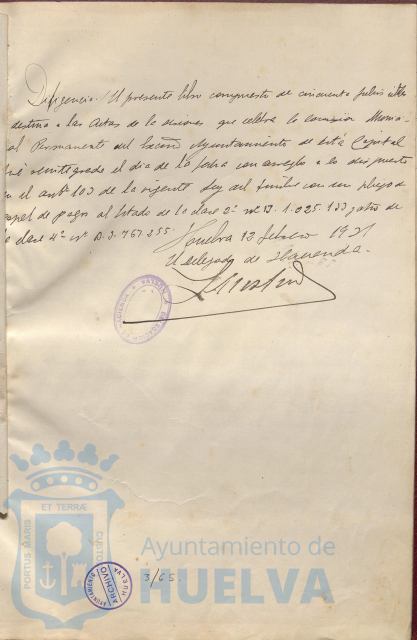 Diligencia. / El presente libro compuesto de cincuenta folios se
destina a las Actas de las sesiones que celebre la comision Munici
al Permanente del Excmo Ayuntamiento de esta Capital
ué reintegrado el dia de la fecha con arreglo a lo dispuesto
n el artº 103 de la vigente Ley del timbre con un pliego de
apel de pagos al Estado de la clase 2ª nº B. 1.025.133 y otro de
a clase 4ª nº B.3.767.255.
Huelva 12 febrero 1931
El delegado de Hacienda.
HACIENDA
ET TERRÆ
PORTUS MARIS
CUSTO
Ayuntamiento de
HUELVA
AYUNTAMIENTO
ARCHIVO
HUELVA
3/65